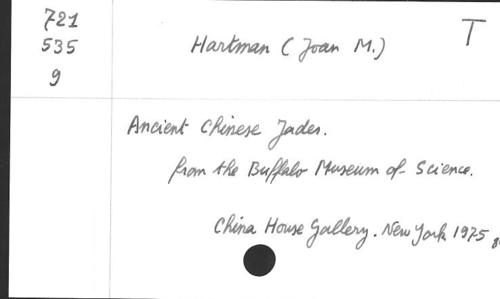 721
535
9
Hartman (Joan M.)
T
Ancient Chinese Jades.
from the Buffalo Museum of Science.
China House Gallery. New York 1975